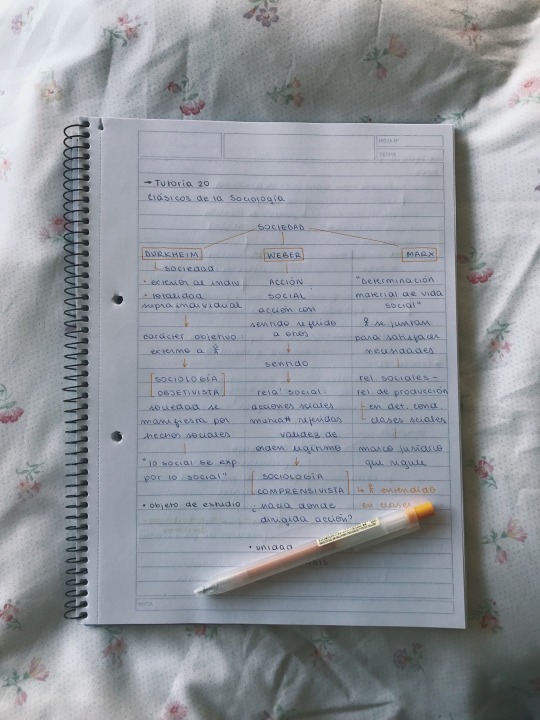 → Tutoria 20
Clásicos de la Sociología
SOCIEDAD
DURKHEIM
sociedad
• exterior al indiv
• totalidad
supraindividual
carácter objetivo:
externo a
[SOCIOLOGÍA
OBJETIVISTA]
sociedad se
manifiesta por
hechos sociales
"lo social se exp.
por lo social"
• objeto de estudio
WEBER
ACCIÓN
SOCIAL
acción con
sentido referido
a otros
sentido
rela° social:
acciones sociales
referidas
validez de
orden legítimo
[SOCIOLOGÍA
COMPRENSIVISTA]
¿hacia donde
dirigida acción?
• unidad
MARX
"Determinación
material de vida
social"
se juntan
para satisfacer
necesidades
rel. sociales -
rel. de producción
en det. cond.
clases sociales
marco jurídico
que regule
entendido
en clases
HOJA Nº
FECHA
NOTA